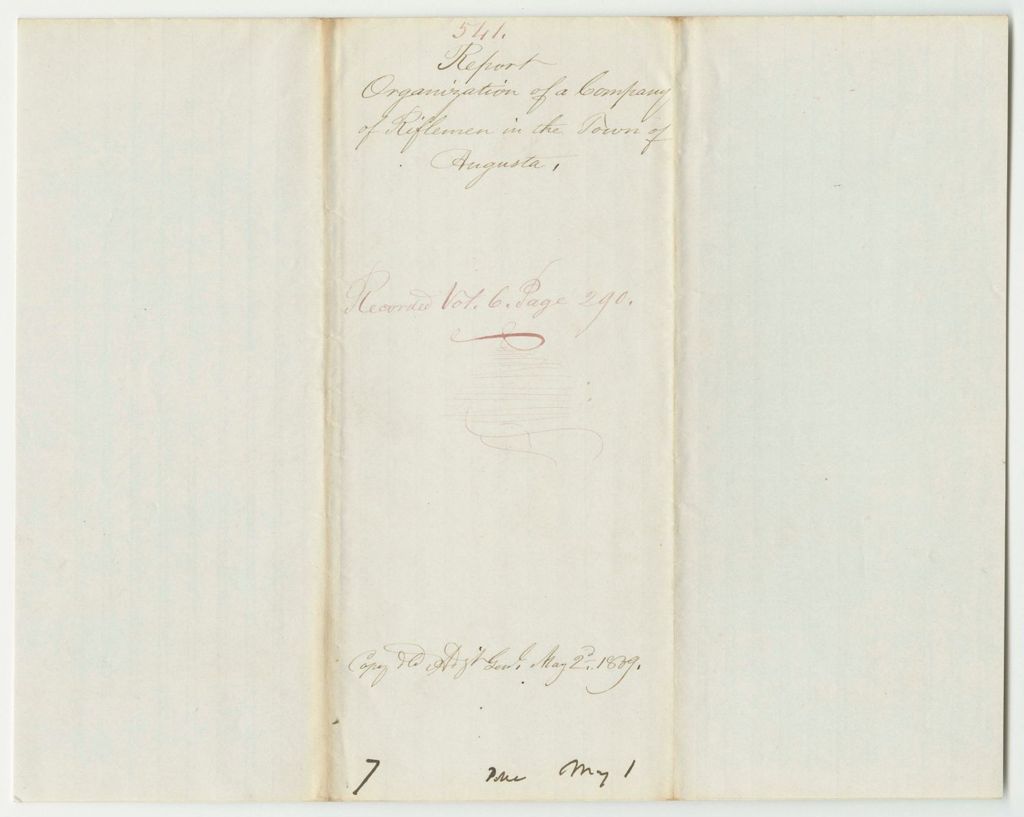 541.
Report
Organization of a Company
of Riflemen in the Town of
Augusta,
Recorded Vol. 6. Page 290.
Copy dld Adjt Genl. May 2d. 1839.
7 May 1